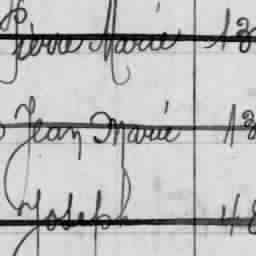 Pierre Marie 13
Jean Marie 13
Joseph 48